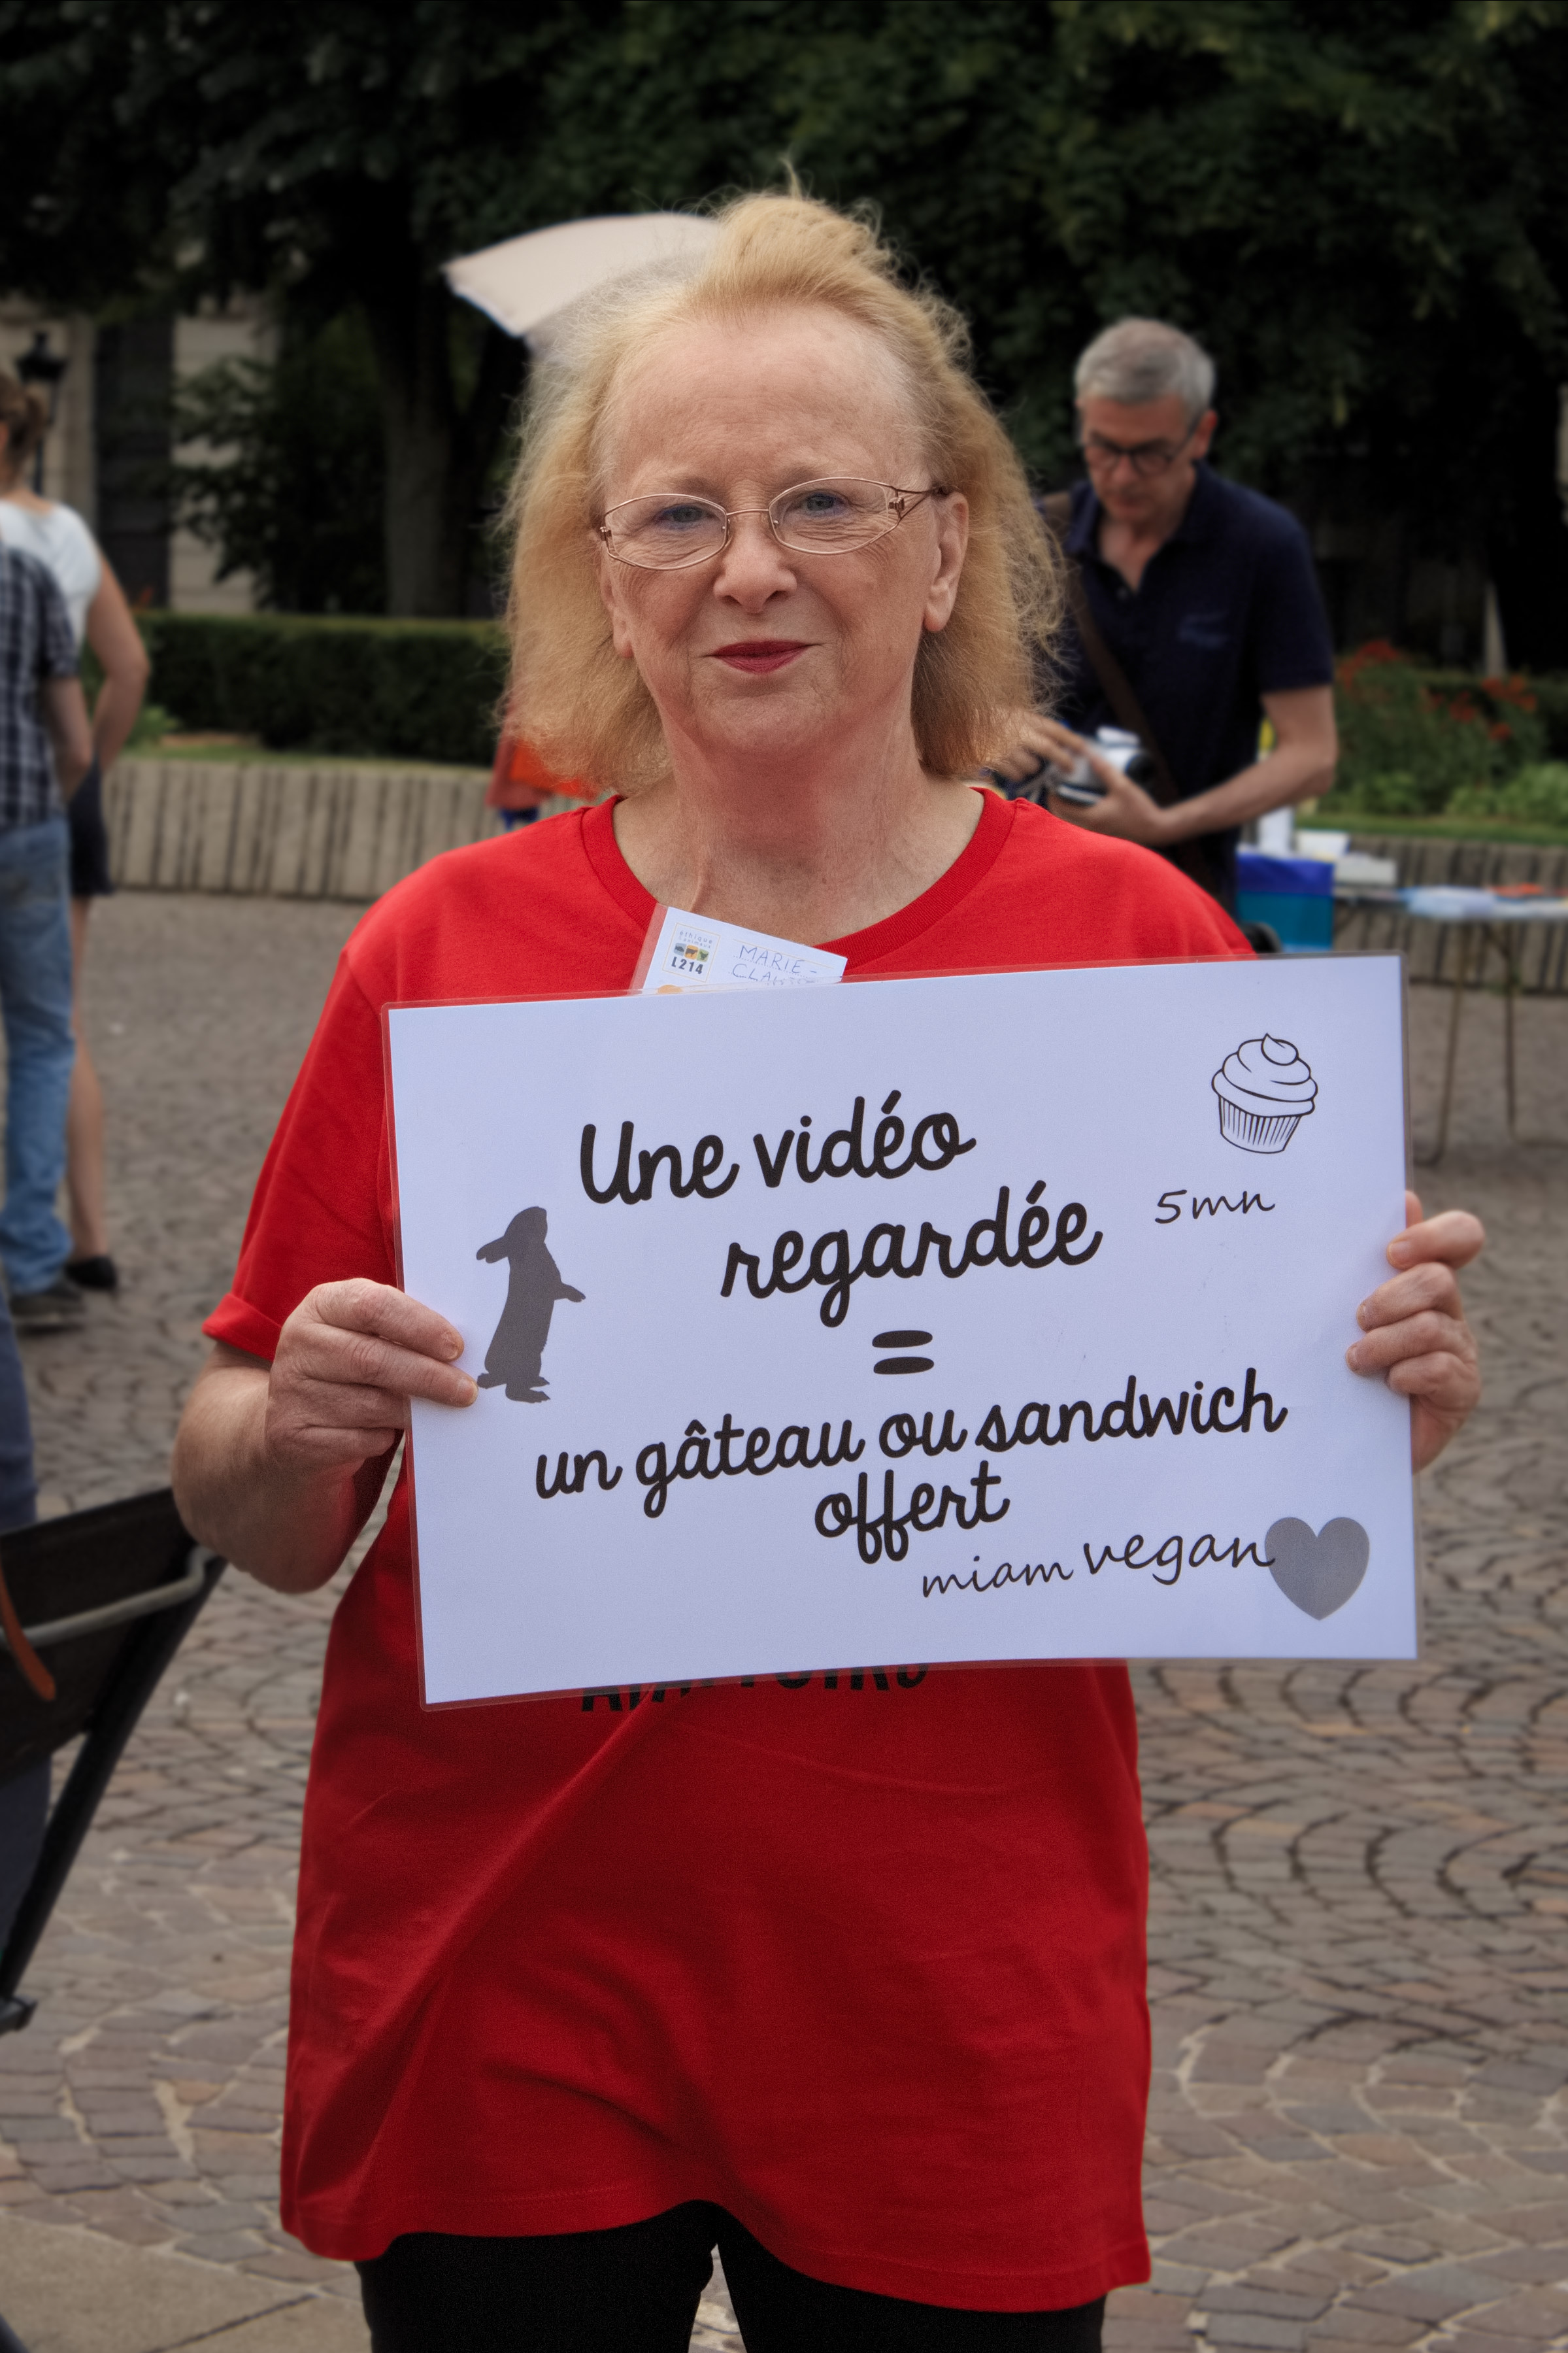 L214
MARIE-
Une vidéo
regardée
5mn
=
un gâteau ou sandwich
offert
miam vegan